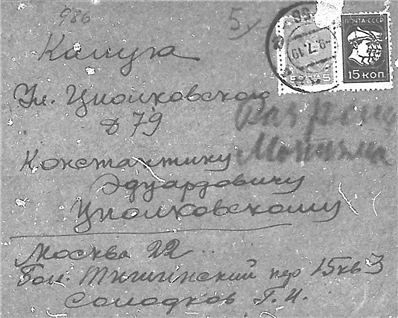 986
5
ПОЧТА СССР
15 КОП.
Калуга
Ул. Циолковского
Д 79
Константину
Эдуардовичу
Циолковскому
Москва 22
Бол. Тишинский пер 15 кв 3
Солодков Г. И.